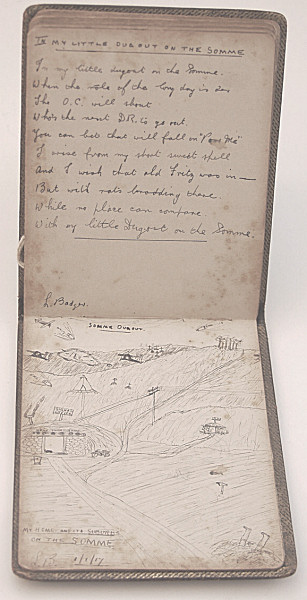 IN MY LITTLE DUGOUT ON THE SOMME
In my little dugout in the Somme.
When the whole of the long day is
The O.C. will shout
Who's the next D.R. to go out.
You can bet that will fall on "Poor Me"
I arise from my short sweet spell
And I wish that old Fritz was in —
But with rats there.
While no place can compare.
With my little Dugout on the Somme.
L. Badger.
SOMME DUGOUT.
MY HOME
ON THE SOMME
1/1/17